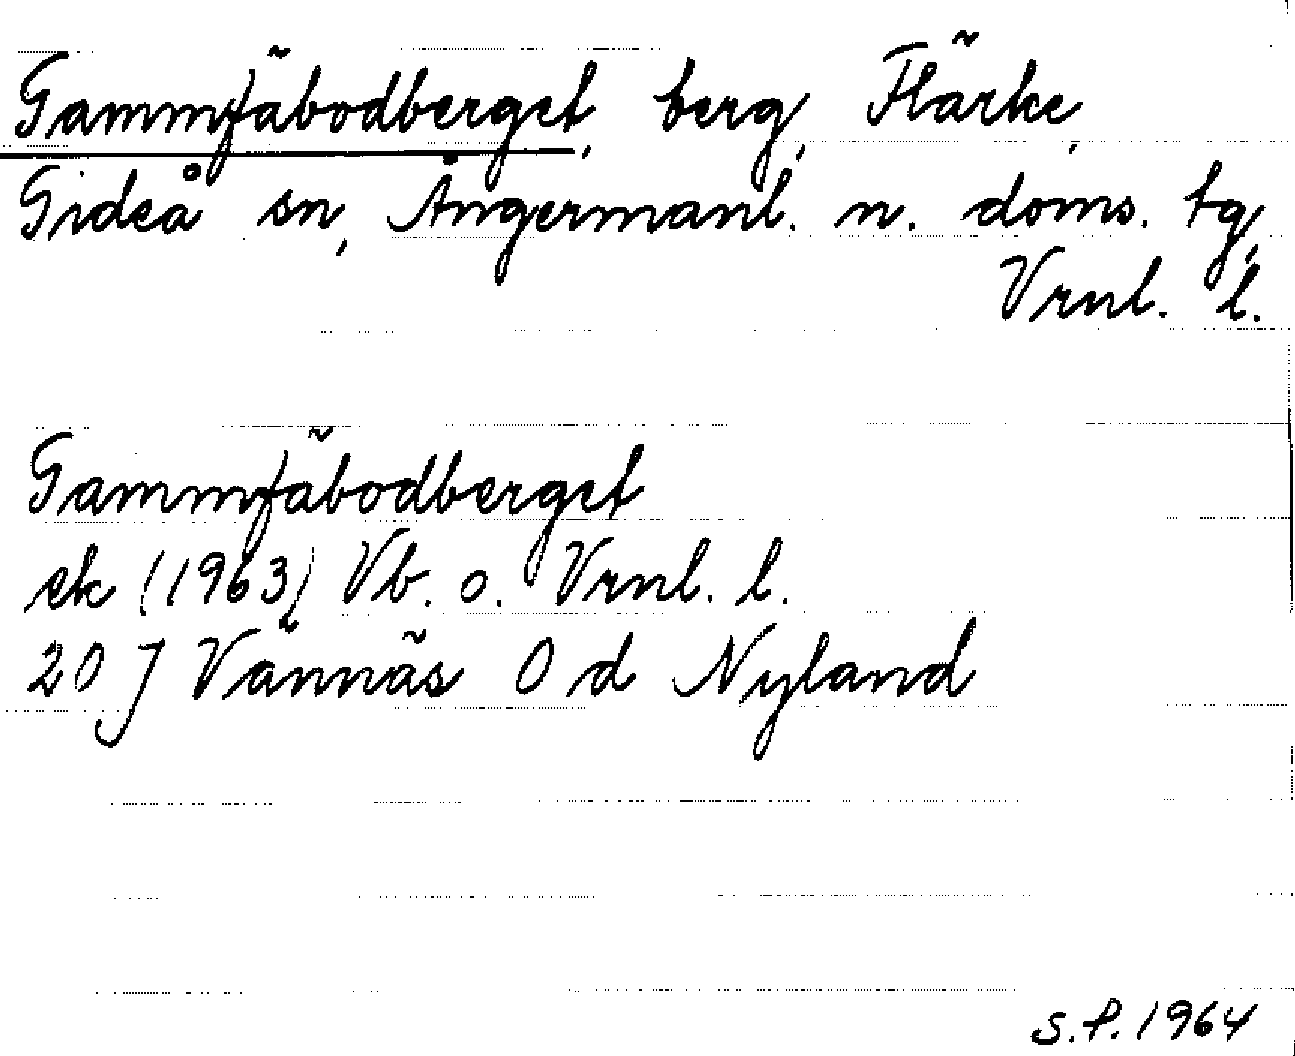 Gammfäbodberget, berg, Flärke,
Gideå sn, Ångermanl. n. doms. tg,
Vrnl. l.
Gammfäbodberget
ek (1963) Vb. o. Vrnl. l.
20 J Vännäs 0 d Nyland
S.P. 1964